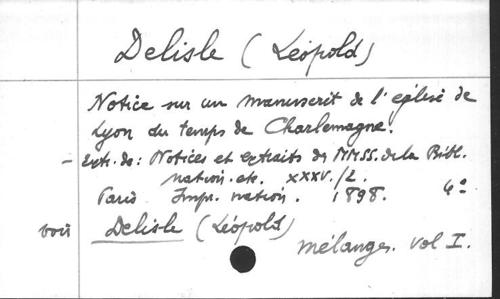 Delisle (Léopold)
Notice sur un manuscrit de l'église de
Lyon du temps de Charlemagne.
– Extr. de: Notices et extraits des MMSS. de la Bibl.
nation. etc. XXXV./2.
Paris Impr. nation. 1898. 4º
voir Delisle (Léopold)
mélanges. vol I.